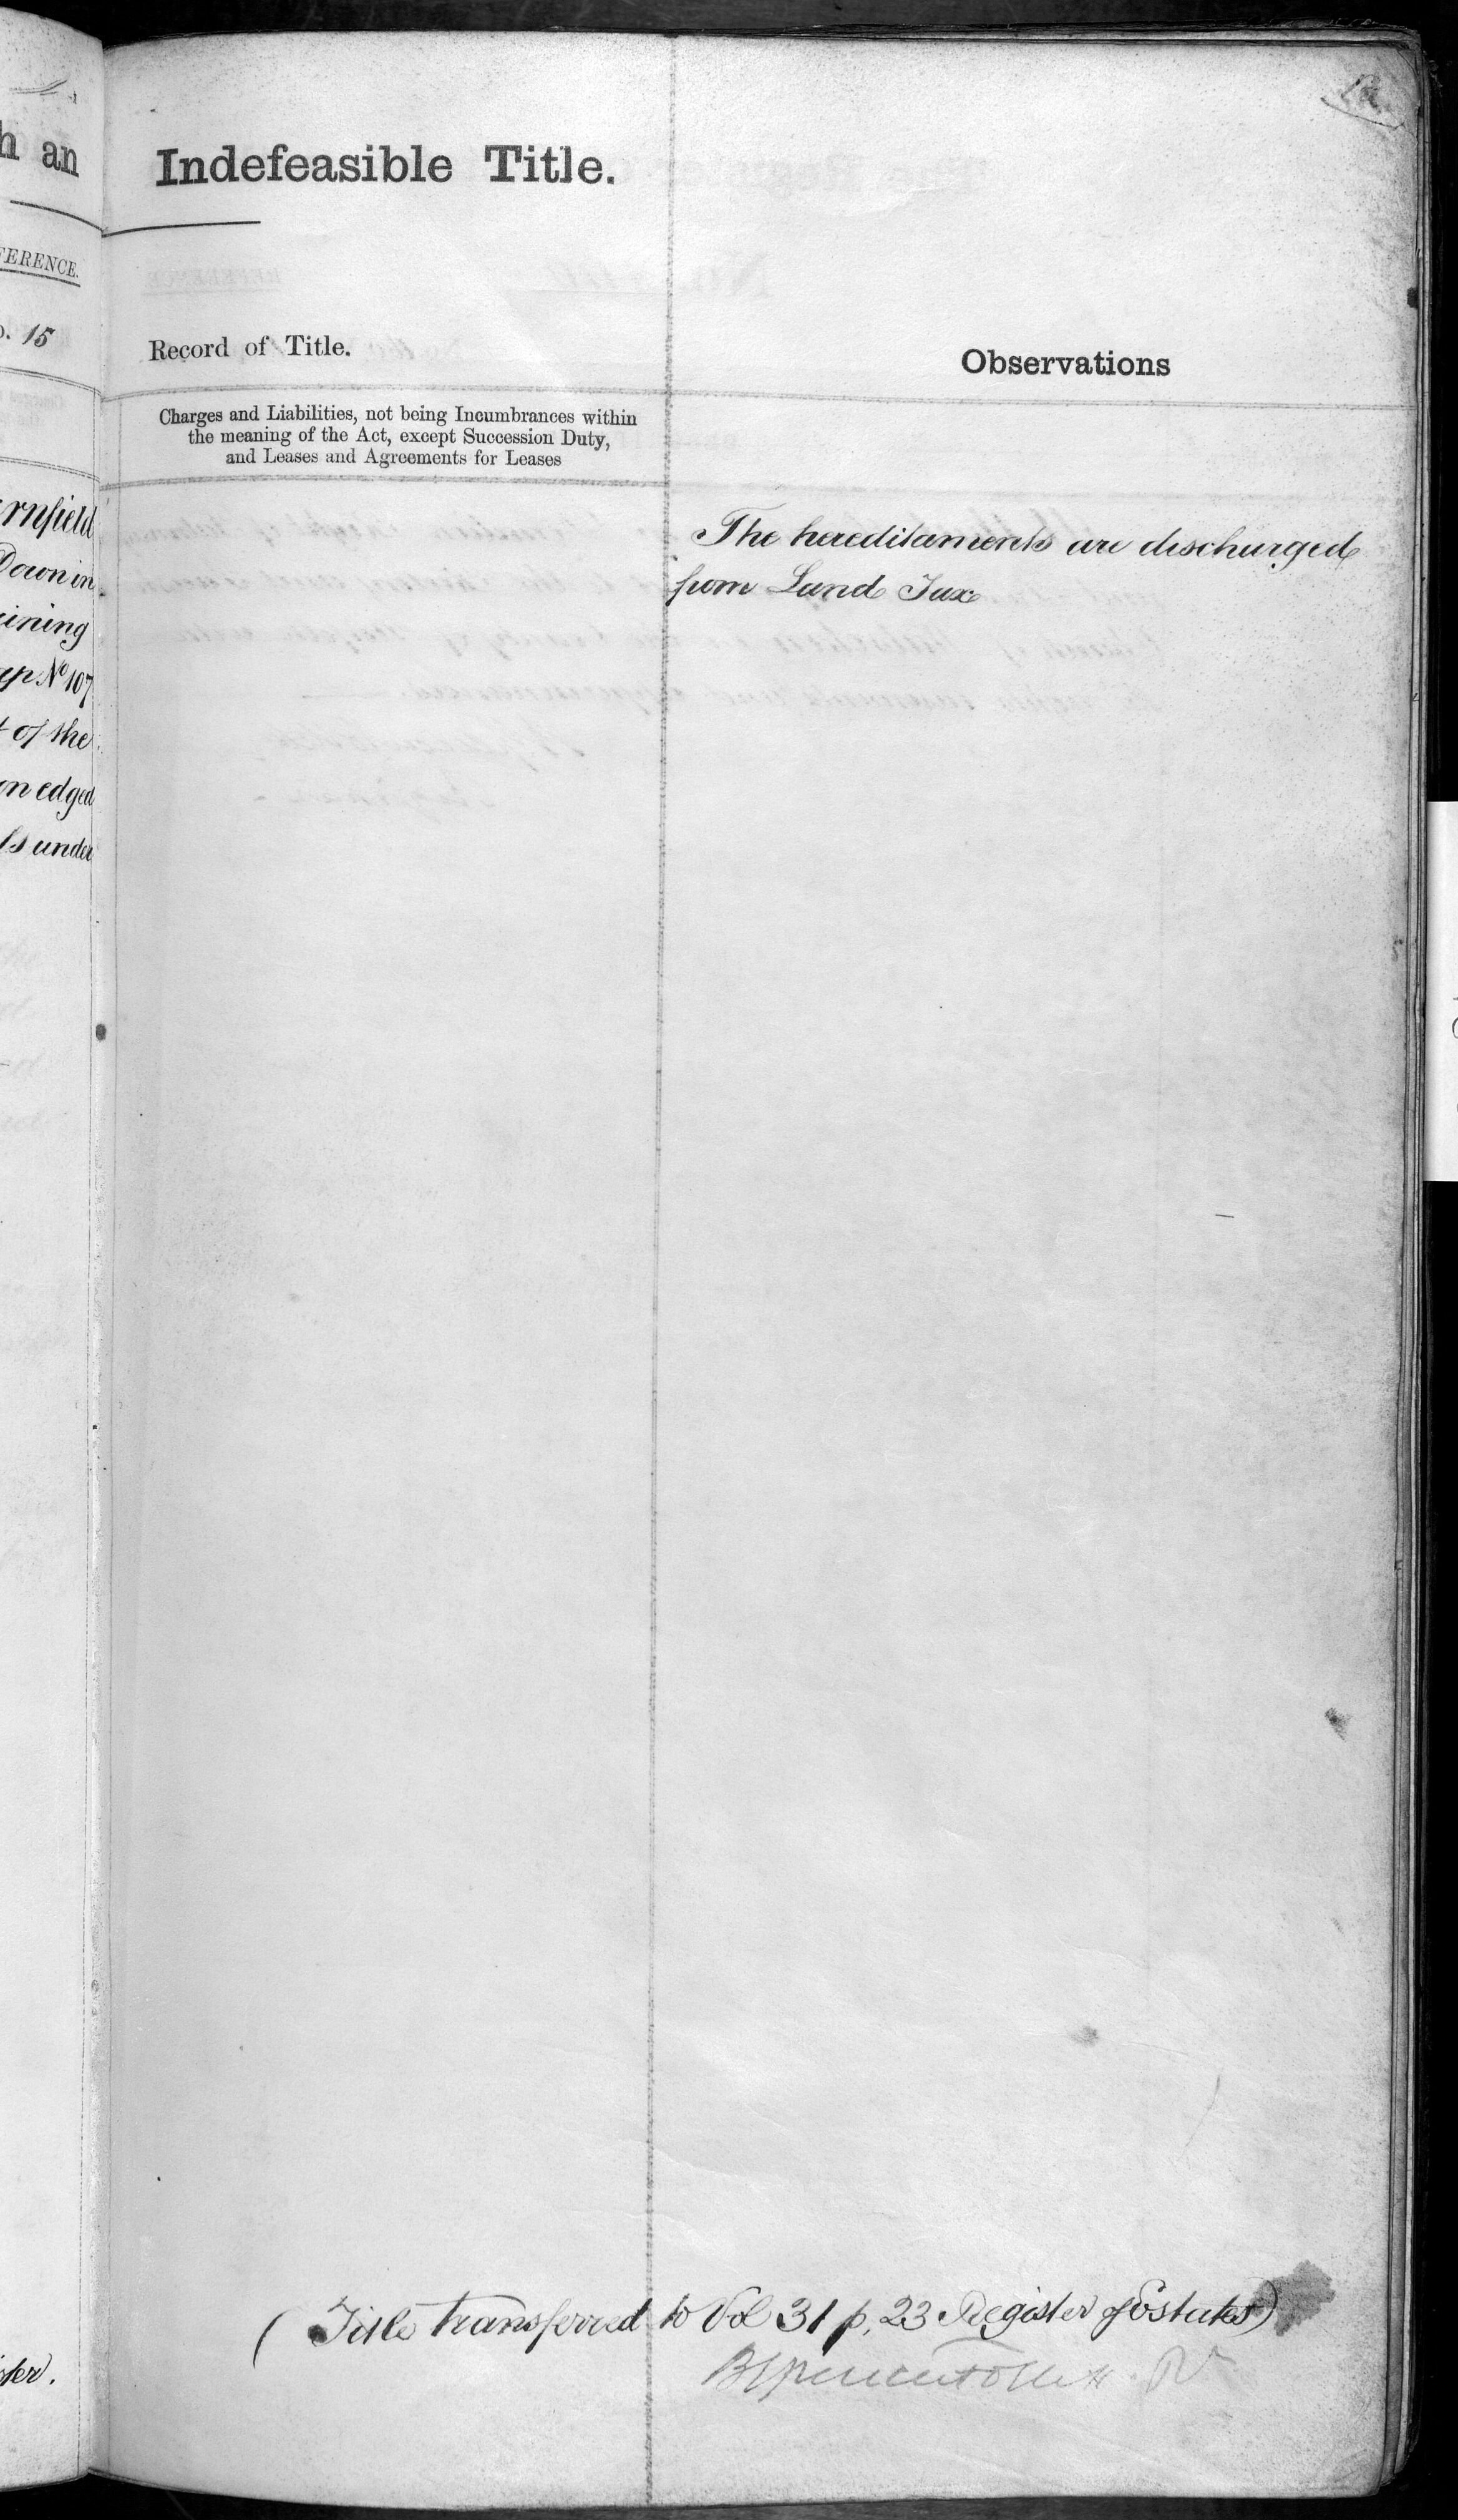 h an
FERENCE.
o. 15
rnfield
Down in
ining
ap No 107
t of the
on edged
ls under
ster.
Indefeasible Title.
Record of Title.
Charges and Liabilities, not being Incumbrances within
the meaning of the Act, except Succession Duty,
and Leases and Agreements for Leases
Observations
The hereditaments are discharged
from Land Tax
(Title transferred to Vol 31 p. 23 Register of Estates)